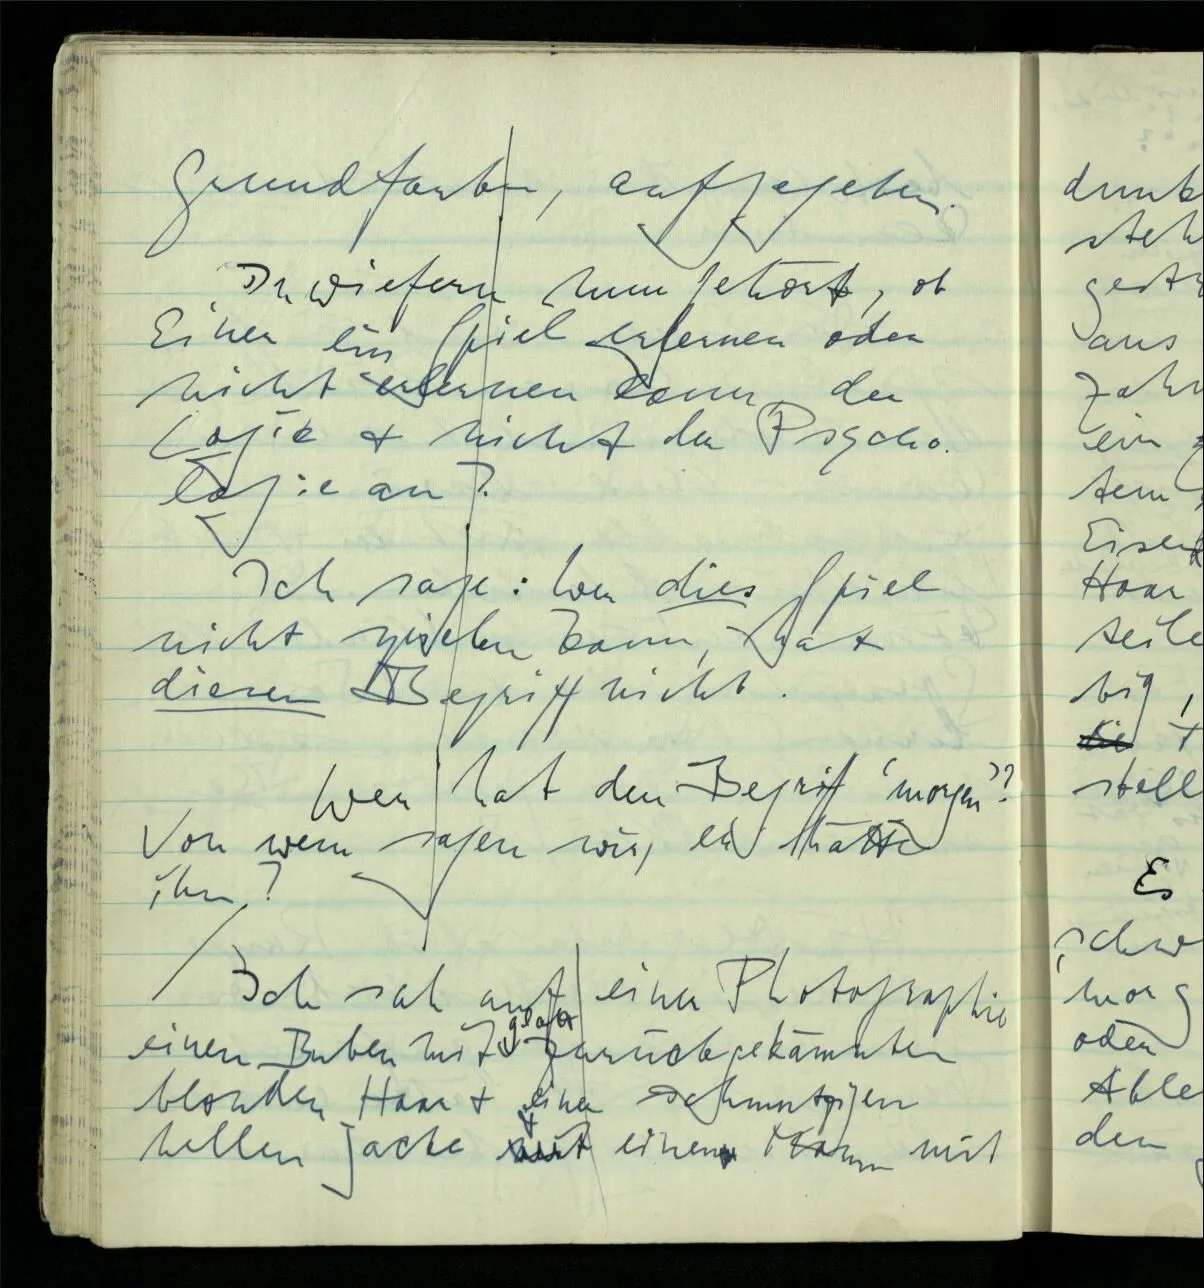 Grundfarben, aufgegeben.
Inwiefern nun gehört, ob
Einer ein Spiel erlernen oder
nicht erlernen kann, der
Logik & nicht der Psycho-
logie an?
Ich sage: Wer dies Spiel
nicht spielen kann, hat
diesen Begriff nicht.
Wer hat den Begriff 'morgen'?
Von wem sagen wir, er hätte
ihn?
Ich sah auf einer Photographie
einen Buben mit glatt zurückgekämmten
blonden Haar & einer schmutzigen
hellen Jacke & einen Mann mit
dunk
steh
gest
aus
zahn
ein
tem
Eisen
Haar
teile
big,
die
stell
Es
schw
morg
oder
Able
den